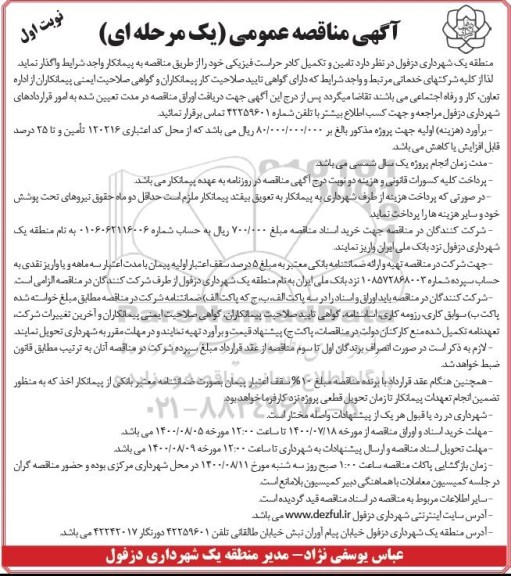 نوبت اول
آگهی مناقصه عمومی (یک مرحله ای)
منطقه یک شهرداری دزفول در نظر دارد تامین و تکمیل کادر حراست فیزیکی خود را از طریق مناقصه به پیمانکار واجد شرایط واگذار نماید.
لذا از کلیه شرکتهای خدماتی مرتبط و واجد شرایط که دارای گواهی تایید صلاحیت کار پیمانکاران و گواهی صلاحیت ایمنی پیمانکاران از اداره
تعاون، کار و رفاه اجتماعی می باشند تقاضا میگردد پس از درج این آگهی جهت دریافت اوراق مناقصه در مدت تعیین شده به امور قراردادهای
شهرداری دزفول مراجعه و جهت کسب اطلاع بیشتر با تلفن شماره ۴۲۲۵۹۶۰۱ تماس برقرار نمائید.
- برآورد (هزینه) اولیه جهت پروژه مذکور بالغ بر ۸۰/۰۰۰/۰۰۰/۰۰۰ ریال می باشد که از محل کد اعتباری ۱۲۰۲۱۶ تأمین و تا ۲۵ درصد
قابل افزایش یا کاهش می باشد.
- مدت زمان انجام پروژه یک سال شمسی می باشد.
- پرداخت کلیه کسورات قانونی و هزینه دو نوبت درج آگهی مناقصه در روزنامه به عهده پیمانکار می باشد.
- در صورتی که پرداخت هزینه از طرف شهرداری به پیمانکار به تعویق بیفتد پیمانکار ملزم است حداقل دو ماه حقوق نیروهای تحت پوشش
خود و سایر هزینه ها را پرداخت نماید.
- شرکت کنندگان در مناقصه جهت خرید اسناد مناقصه مبلغ ۷۰۰/۰۰۰ ریال به حساب شماره ۰۱۰۶۰۶۲۱۱۶۰۰۶ به نام منطقه یک
شهرداری دزفول نزد بانک ملی ایران واریز نمایند.
- جهت شرکت در مناقصه تهیه و ارائه ضمانتنامه بانکی معتبر به مبلغ ۵ درصد سقف اعتبار اولیه پیمان با مدت اعتبار سه ماهه و یا واریز نقدی به
حساب سپرده شماره ۱۰۸۵۷۲۸۶۸۰۰۳ نزد بانک ملی ایران به نام منطقه یک شهرداری دزفول از طرف شرکت کنندگان در مناقصه الزامی است.
- شرکت کنندگان در مناقصه باید اوراق و اسناد را در سه پاکت الف، ب، ج که پاکت الف) ضمانتنامه شرکت در مناقصه مطابق مبلغ خواسته شده
پاکت ب) سوابق کاری، رزومه کاری، اساسنامه، گواهی تایید صلاحیت پیمانکاران، گواهی صلاحیت ایمنی پیمانکاران و آخرین تغییرات شرکت،
تعهدنامه تکمیل شده منع کارکنان دولت در مناقصات، پاکت ج) پیشنهاد قیمت و برآورد تهیه نمایند و در مهلت مقرر به شهرداری تحویل نمایند.
- لازم به ذکر است در صورت انصراف برندگان اول تا سوم مناقصه از عقد قرارداد مبلغ سپرده شرکت در مناقصه آنان به ترتیب مطابق قانون
ضبط خواهد شد.
- همچنین هنگام عقد قرارداد با برنده مناقصه مبلغ ۱۰% سقف اعتبار پیمان بصورت ضمانتنامه معتبر بانکی از پیمانکار اخذ که به منظور
تضمین انجام تعهدات پیمانکار تا زمان تحویل قطعی پروژه نزد کارفرما خواهد بود.
- شهرداری در رد یا قبول هر یک از پیشنهادات واصله مختار است.
- مهلت خرید اسناد و اوراق مناقصه از مورخه ۱۴۰۰/۰۷/۱۸ تا ساعت ۱۲:۰۰ مورخه ۱۴۰۰/۰۸/۰۵ می باشد.
- مهلت تحویل اسناد مناقصه و ارسال پیشنهادات به شهرداری تا ساعت ۱۲:۰۰ مورخه ۱۴۰۰/۰۸/۰۹ می باشد.
- زمان بازگشایی پاکات مناقصه ساعت ۱:۰۰ صبح روز سه شنبه مورخ ۱۴۰۰/۰۸/۱۱ در محل شهرداری مرکزی بوده و حضور مناقصه گران
در جلسه کمیسیون معاملات با هماهنگی دبیر کمیسیون بلامانع است.
- سایر اطلاعات مربوط به مناقصه در اسناد مناقصه قید گردیده است.
- آدرس سایت اینترنتی شهرداری دزفول www.dezful.ir می باشد.
- آدرس منطقه یک شهرداری دزفول خیابان پیام آوران نبش خیابان طالقانی تلفن ۴۲۲۵۹۶۰۱ دورنگار ۴۲۲۴۲۰۱۷ می باشد.
عباس یوسفی نژاد- مدیر منطقه یک شهرداری دزفول